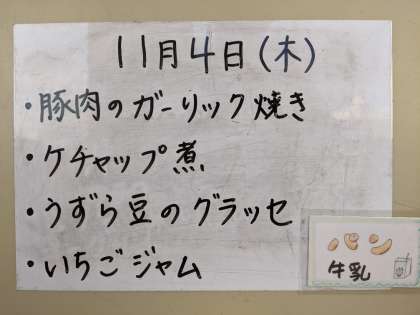 11月4日(木)
・豚肉のガーリック焼き
・ケチャップ煮
・うずら豆のグラッセ
・いちごジャム
パン
牛乳